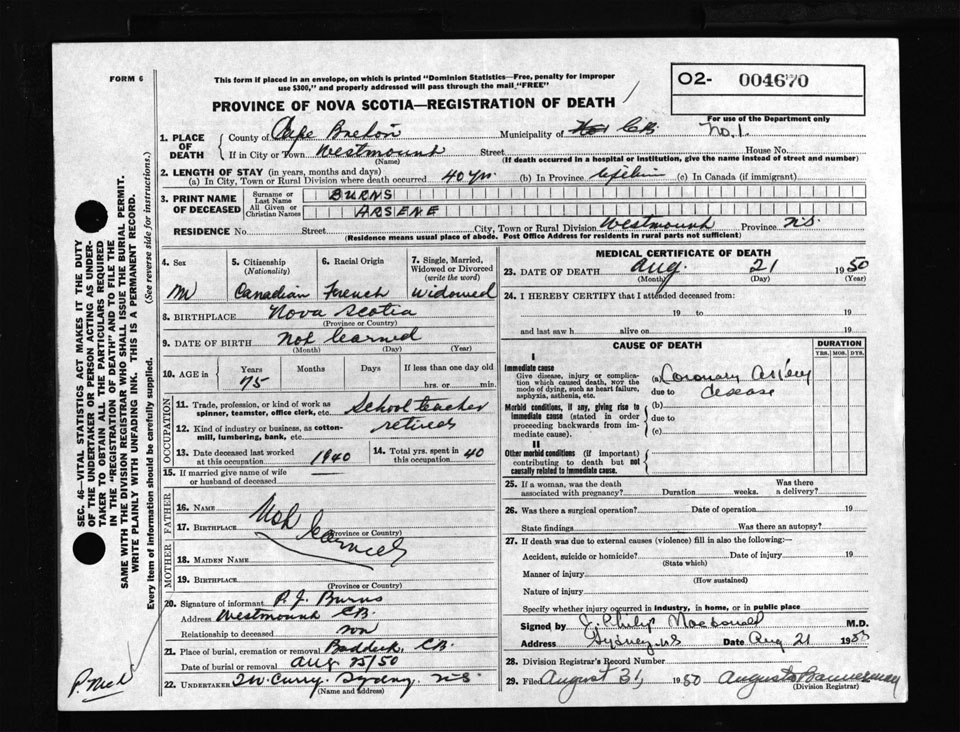 FORM 6
This form if placed in an envelope, on which is printed "Dominion Statistics—Free, penalty for improper
use $300," and properly addressed will pass through the mail "FREE"
O2- 004670
For use of the Department only
PROVINCE OF NOVA SCOTIA—REGISTRATION OF DEATH
No. 1.
1. PLACE OF DEATH
County of Cape Breton Municipality of C.B.
If in City or Town Westmount Street House No.
(Name) (If death occurred in a hospital or institution, give the name instead of street and number)
2. LENGTH OF STAY (in years, months and days)
(a) In City, Town or Rural Division where death occurred 40 yrs. (b) In Province Lifetime (c) In Canada (if immigrant)
3. PRINT NAME OF DECEASED
Surname or Last Name BURNS
All Given or Christian Names ARSENE
RESIDENCE No. Street City, Town or Rural Division Westmount Province N.S.
(Residence means usual place of abode. Post Office Address for residents in rural parts not sufficient)
4. Sex M
5. Citizenship (Nationality) Canadian
6. Racial Origin French
7. Single, Married, Widowed or Divorced (write the word) Widowed
8. BIRTHPLACE Nova Scotia
(Province or Country)
9. DATE OF BIRTH Not learned
(Month) (Day) (Year)
10. AGE in Years 75 Months Days If less than one day old hrs. or min.
OCCUPATION
11. Trade, profession, or kind of work as spinner, teamster, office clerk, etc. School teacher
12. Kind of industry or business, as cotton-mill, lumbering, bank, etc. retired
13. Date deceased last worked at this occupation 1940
14. Total yrs. spent in this occupation 40
15. If married give name of wife or husband of deceased —
FATHER
16. NAME Not
17. BIRTHPLACE learned
(Province or Country)
MOTHER
18. MAIDEN NAME
19. BIRTHPLACE
(Province or Country)
20. Signature of informant P. J. Burns
Address Westmount C.B.
Relationship to deceased son
21. Place of burial, cremation or removal Baddeck, C.B.
Date of burial or removal Aug 25/50
22. UNDERTAKER Curry. Sydney N.S.
(Name and address)
MEDICAL CERTIFICATE OF DEATH
23. DATE OF DEATH Aug. 21 1950
(Month) (Day) (Year)
24. I HEREBY CERTIFY that I attended deceased from:
19 to 19
and last saw h alive on 19
CAUSE OF DEATH
DURATION
YRS. MOS. DYS.
I
Immediate cause
Give disease, injury or complication which caused death, NOT the mode of dying, such as heart failure, asphyxia, asthenia, etc.
(a) Coronary Artery
due to disease
Morbid conditions, if any, giving rise to immediate cause (stated in order proceeding backwards from immediate cause).
(b)
due to
(c)
II
Other morbid conditions (if important) contributing to death but not causally related to immediate cause.
25. If a woman, was the death associated with pregnancy? Duration weeks. Was there a delivery?
26. Was there a surgical operation? Date of operation 19
State findings Was there an autopsy?
27. If death was due to external causes (violence) fill in also the following:—
Accident, suicide or homicide? Date of injury 19
(State which)
Manner of injury
(How sustained)
Nature of injury
Specify whether injury occurred in industry, in home, or in public place
Signed by J. Philip Macdonald M.D.
Address Sydney N.S Date Aug 21 1950
28. Division Registrar's Record Number
29. Filed August 31, 1950 Bannerman
(Division Registrar)
SEC. 46—VITAL STATISTICS ACT MAKES IT THE DUTY
OF THE UNDERTAKER OR PERSON ACTING AS UNDER-
TAKER TO OBTAIN ALL THE PARTICULARS REQUIRED
IN THE "REGISTRATION OF DEATH" AND TO FILE THE
SAME WITH THE DIVISION REGISTRAR WHO SHALL ISSUE THE BURIAL PERMIT.
WRITE PLAINLY WITH UNFADING INK. THIS IS A PERMANENT RECORD.
Every item of information should be carefully supplied. (See reverse side for instructions.)